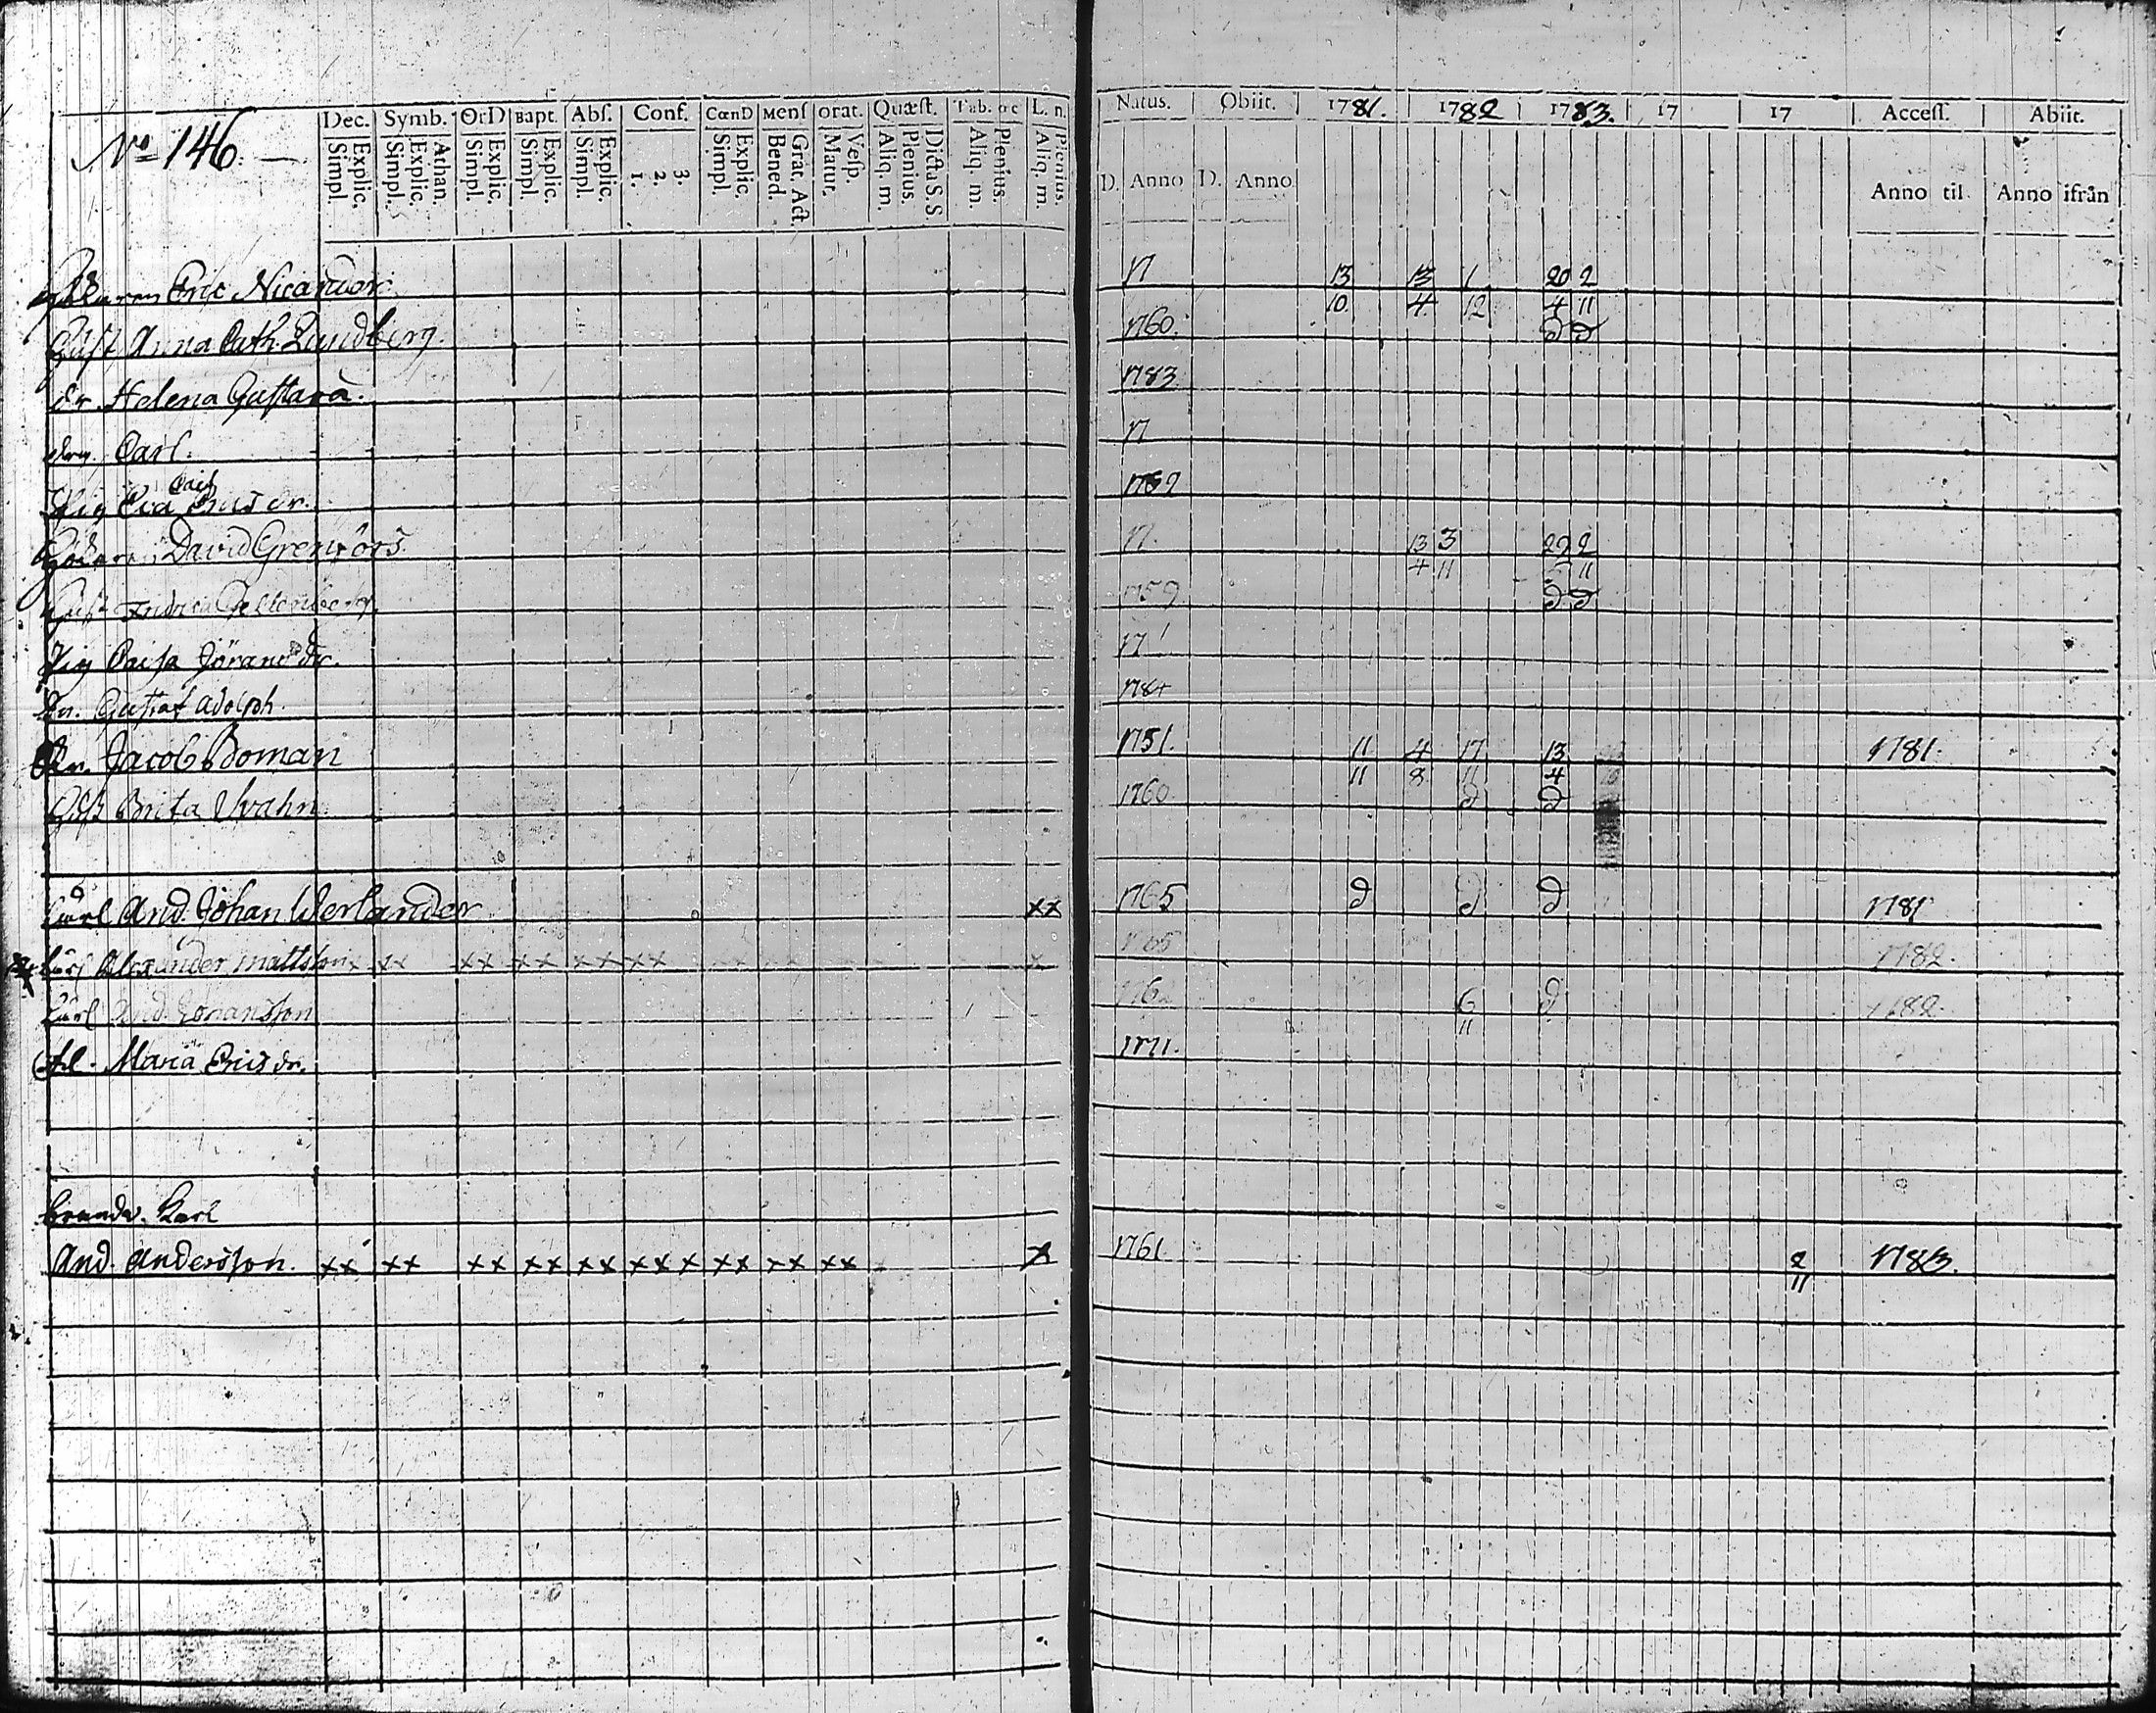 Nº 146.
Dec. Symb. OrD Bapt. Abſ. Conf. CœnD Menſ Orat. Quæſt. Tab. œc L. n.
Explic. Simpl. Athan. Explic. Simpl. Explic. Simpl. Explic. Simpl. Explic. Simpl. 3. 2. 1. Explic. Simpl. Grat. Act. Bened. Veſp. Matut. Dicta S.S Plenius. Aliq. m. Plenius. Aliq. m. Plenius. Aliq. m.
Natus. Obiit. 1781. 1782 1783. 17 17 Acceſſ. Abiit.
D. Anno D. Anno Anno til Anno ifrån
Eric Nicander 17 13 13 1 20 2
10. 4 12 4 11
Huſt Anna Cath Lundberg. 1760. ∂ ∂
dr. Helena Guſtava. 1783
Carl. 17
Caiſ
Pig Eva Ericsdr. 1752
David Grenfors. 17. 13 3 29 2
4 11 11
Huſt 1759 ∂ ∂
Pig Caiſa Jöransdr. 17
Sn. Guſtaf Adolph. 1784
Jacob Boman 1751. 11 4 17 13 1781.
11 8 11 4
Huſt Brita Svahn. 1760 ∂ ∂
And. Johan Werlander xx 1765 ∂ ∂ ∂ 1781
Alexander Mattsſon x xx xx xx xx xx 1765 1782.
And. Göransſon 6 ∂ 1782.
11
Maria Ericsdr. 1711.
Brandw. Karl
And. Andersſon. xx xx xx xx xx xx x xx xx xx x 1761 2 1783.
11